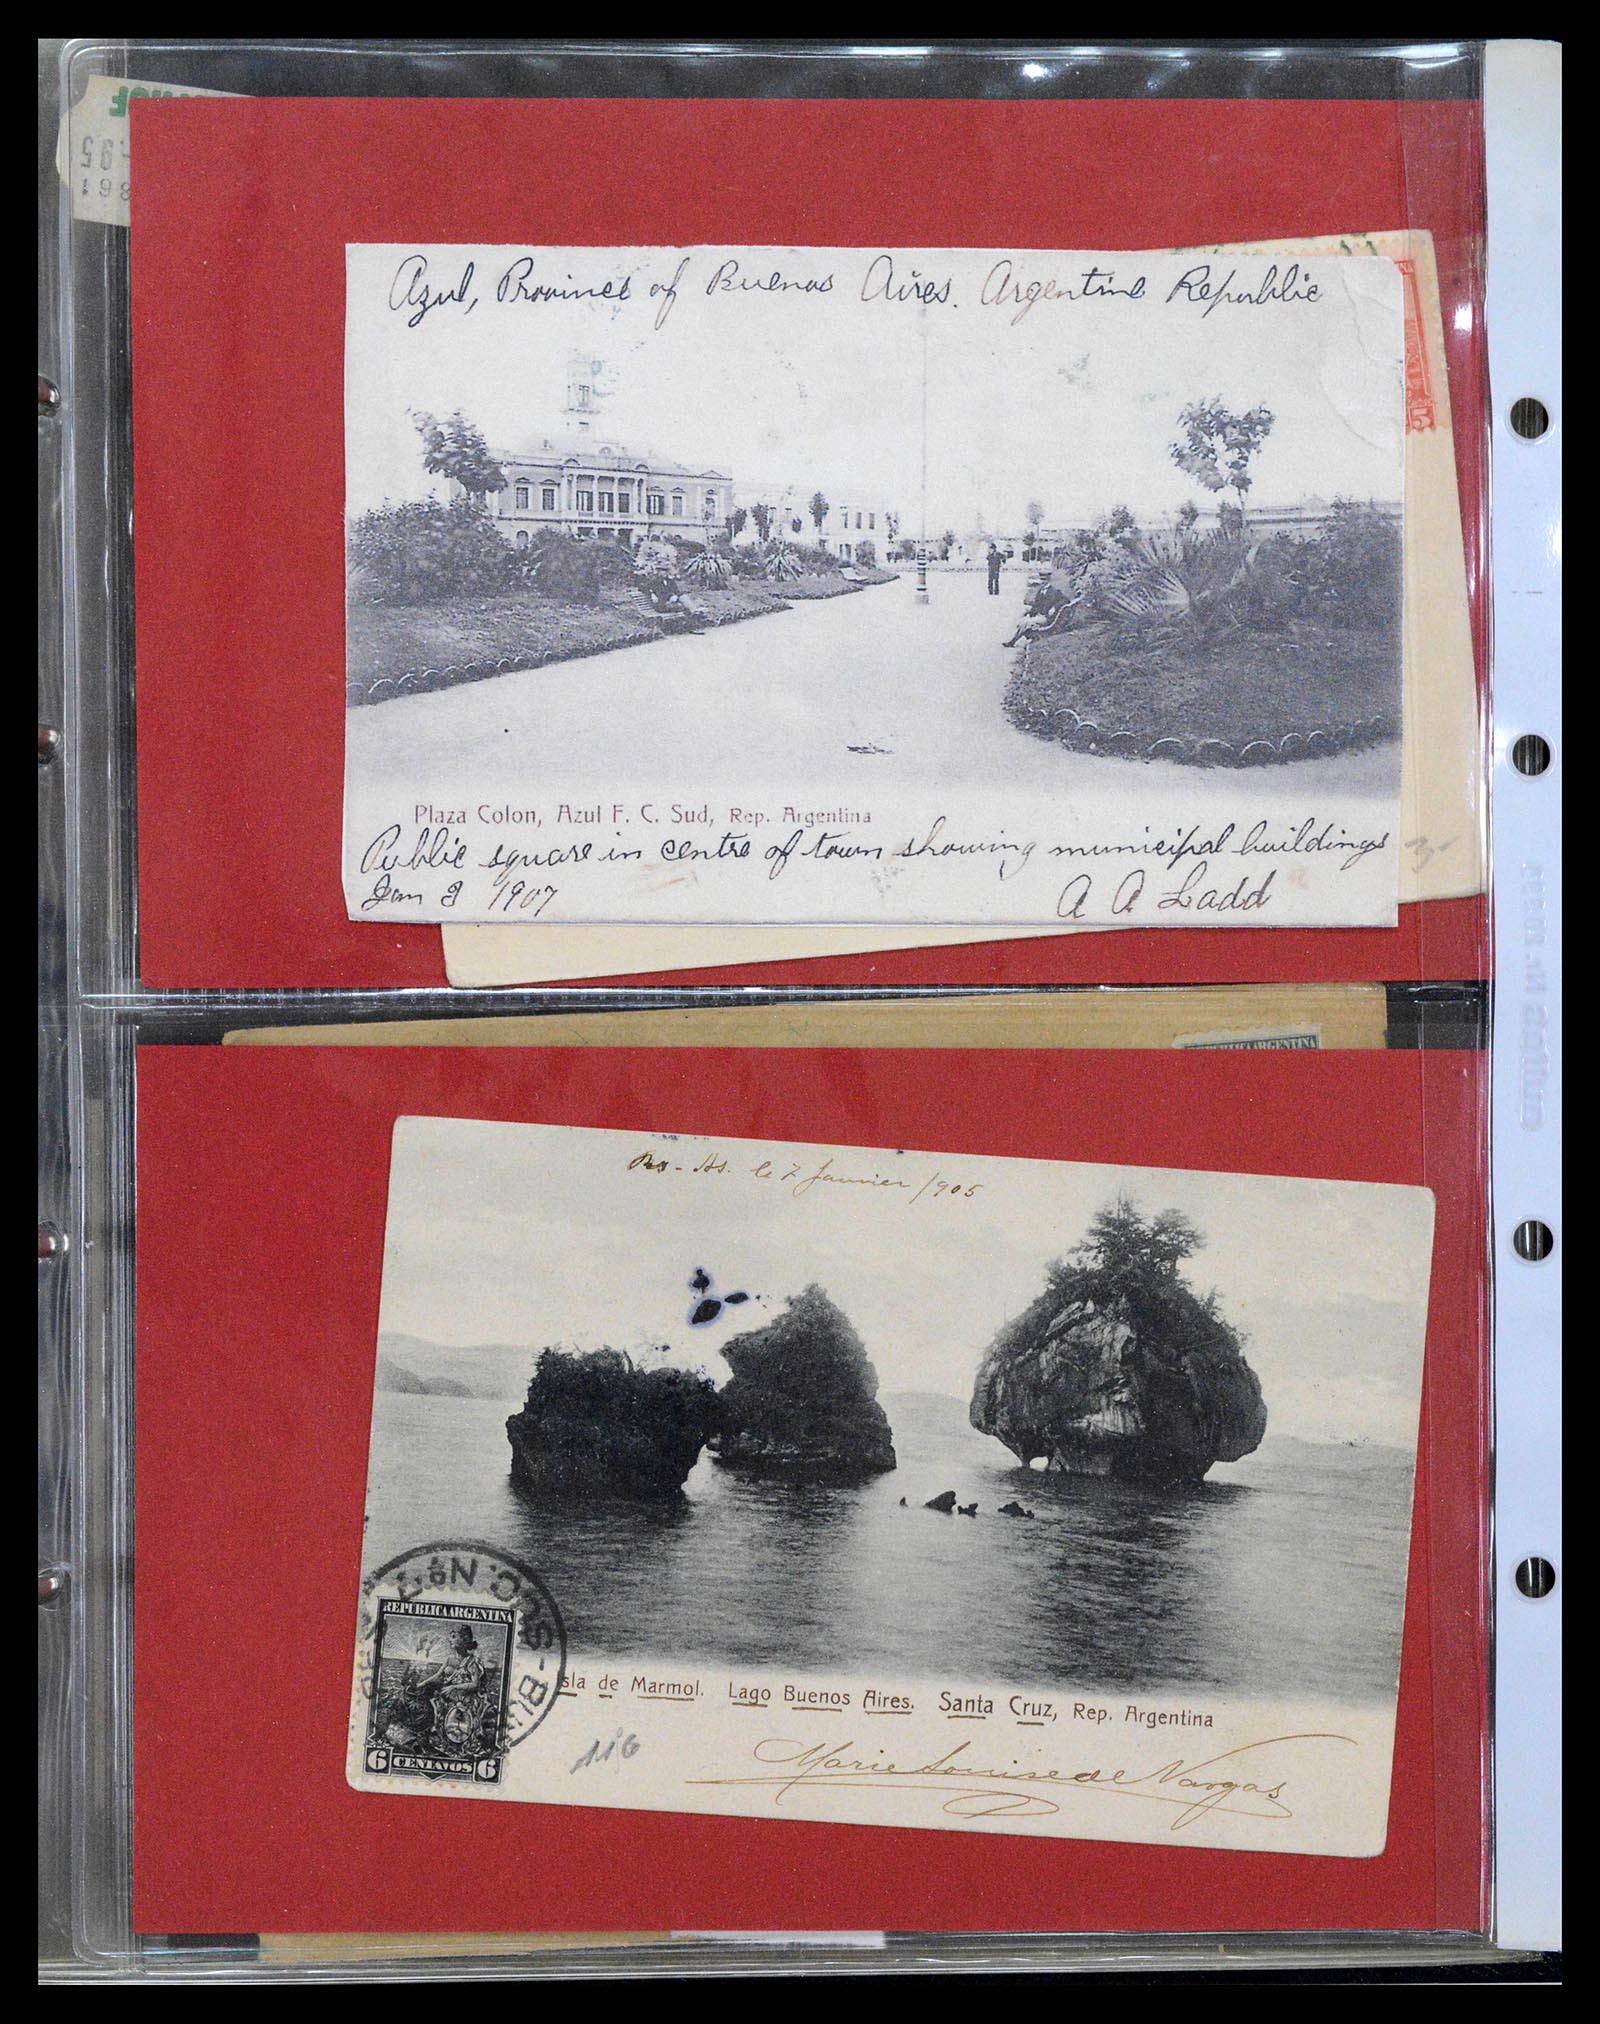 Azul, Province of Buenos Aires. Argentine Republic
Plaza Colon, Azul F. C. Sud, Rep. Argentina
Public square in centre of town showing municipal buildings
Jan 3 1907
A A Ladd
3-
Bs-As. le 7 Janvier 1905
SUC. Nº
REPUBLICA ARGENTINA
6 CENTAVOS 6
Isla de Marmol. Lago Buenos Aires. Santa Cruz, Rep. Argentina
116
Marie Louise de Vargas